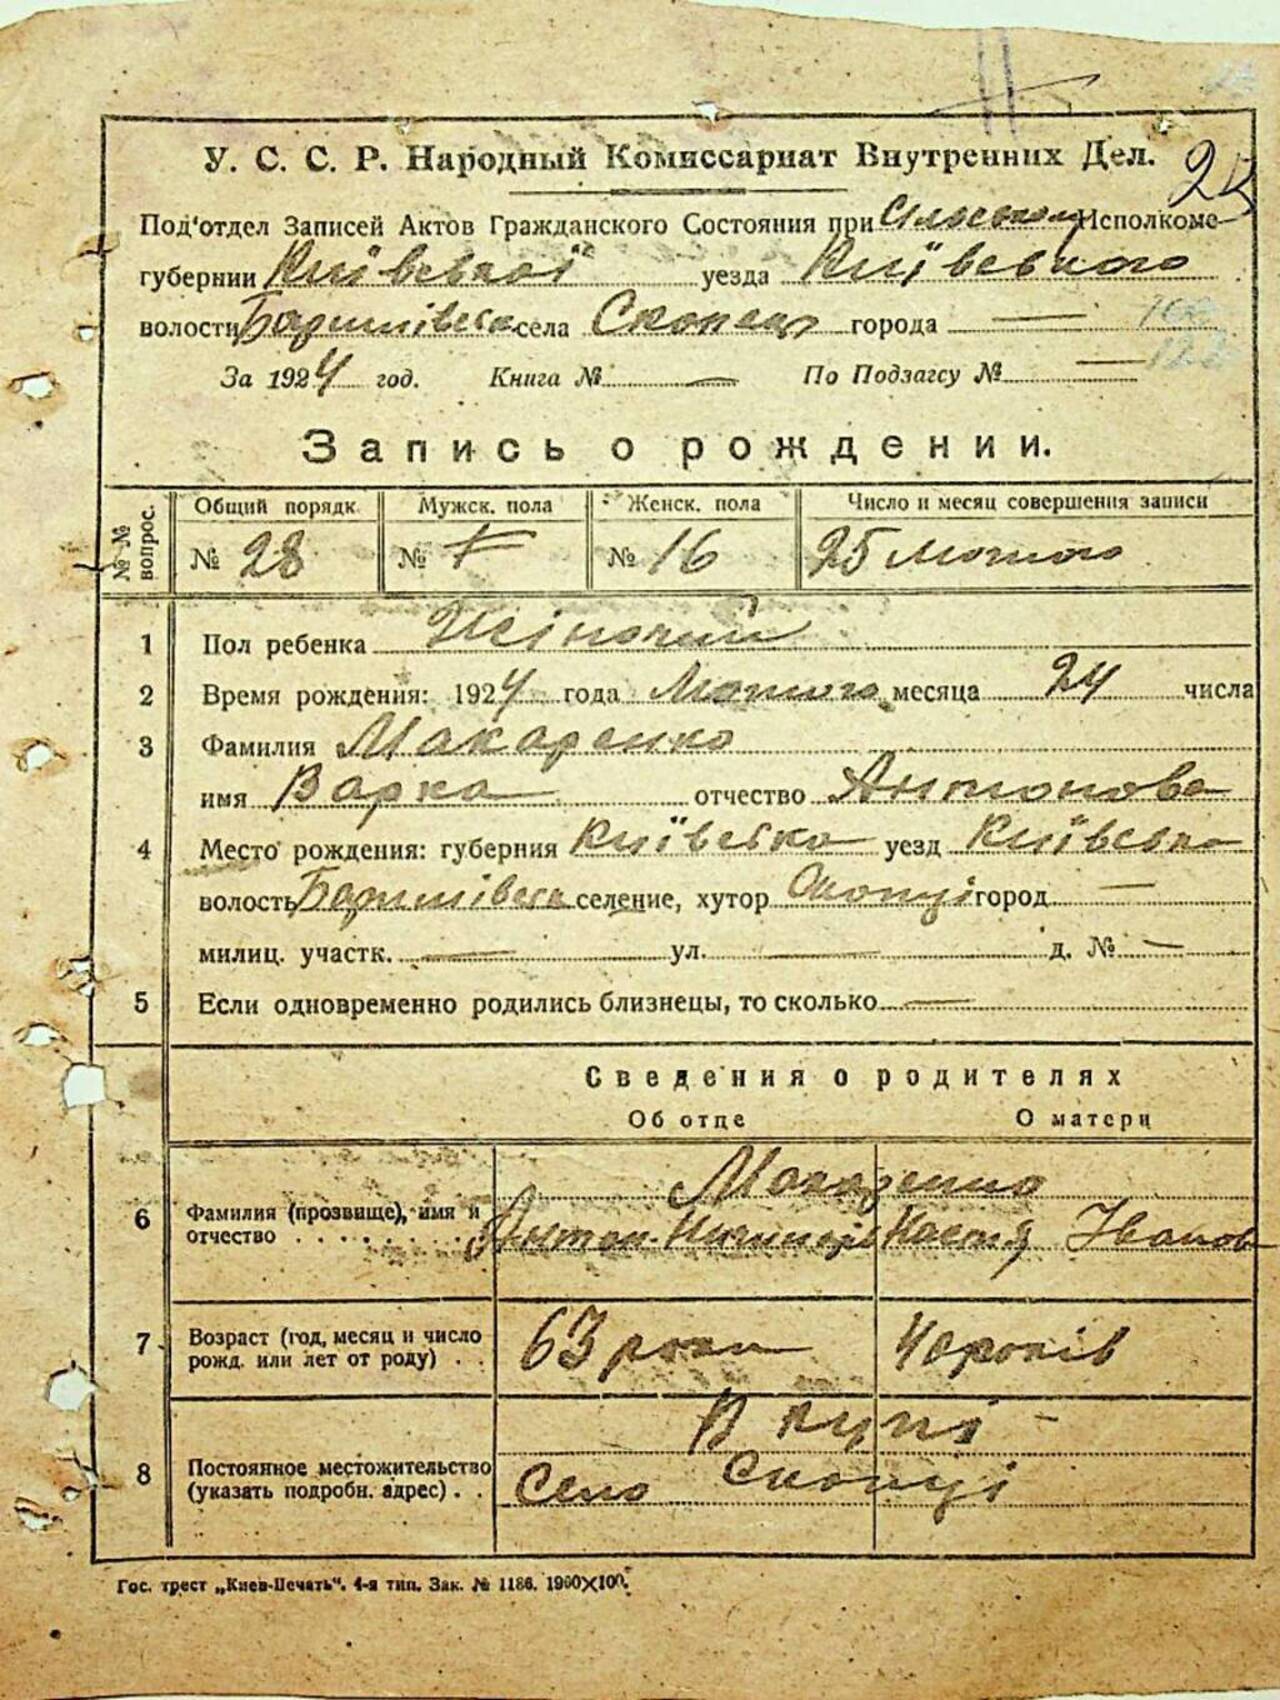 У. С. С. Р. Народный Комиссариат Внутренних Дел.
Под'отдел Записей Актов Гражданского Состояния при Сільському Исполкоме
губернии Київської уезда Київського
волости Баришівськ села Скопец города —
За 1924 год. Книга № — По Подзагсу № —
Запись о рождении.
№ № вопрос.
Общий порядк. Мужск. пола Женск. пола Число и месяц совершения записи
№ 28 № № 16 25 Лютого
1 Пол ребенка Жіночий
2 Время рождения: 1924 года Лютого месяца 24 числа
3 Фамилия Макаренко
имя Варка отчество Антонова
4 Место рождения: губерния Київська уезд Київська
волость Баришівськ селение, хутор Скопці город —
милиц. участк. — ул. — д. № —
5 Если одновременно родились близнецы, то сколько —
Сведения о родителях
Об отце О матери
Макаренко
6 Фамилия (прозвище), имя и отчество Антон Ничипорів Настя Іванов
7 Возраст (год, месяц и число рожд. или лет от роду) 63 роки 40 років
В купі
8 Постоянное местожительство (указать подробн. адрес) Село Скопці
Гос. трест „Киев-Печать“. 4-я тип. Зак. № 1186. 1900×100.